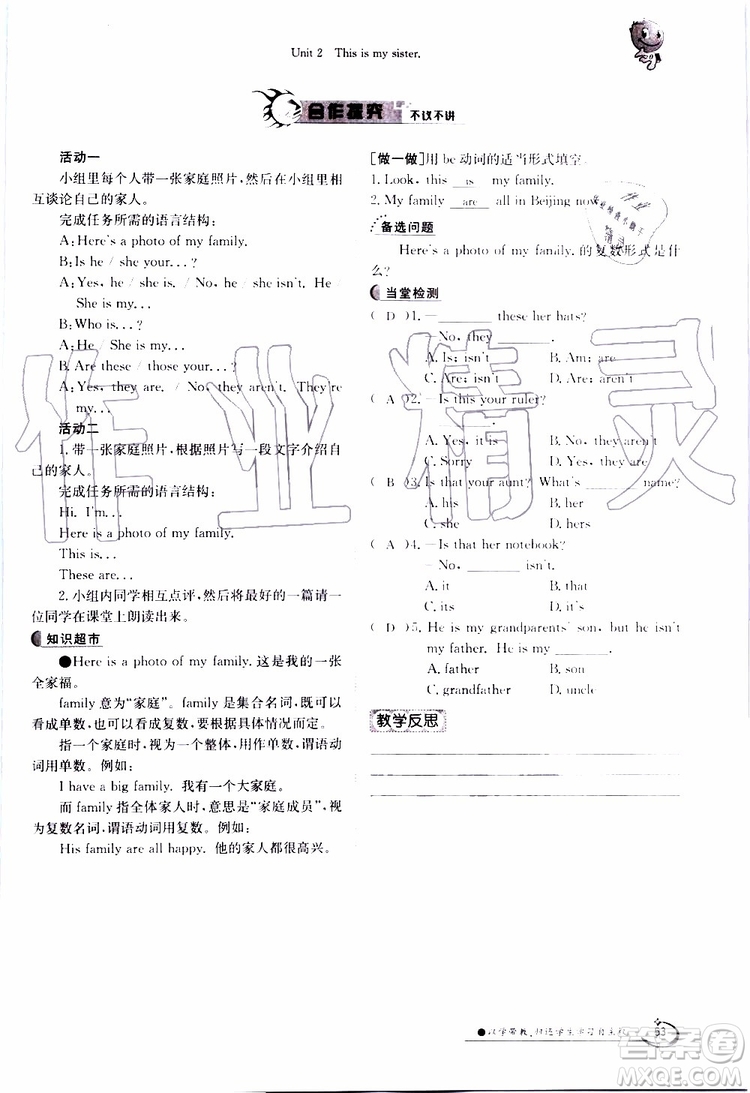 Unit 2 This is my sister.
合作探究 不议不讲
活动一
小组里每个人带一张家庭照片,然后在小组里相
互谈论自己的家人。
完成任务所需的语言结构:
A: Here's a photo of my family.
B: Is he / she...?
A: Yes, he / she is. / No, he / she isn't. He /
She is my...
B: Who is...?
A: He / She is my...
B: Are these / those your...?
A: Yes, they are. / No, they aren't. They're
my...
活动二
1. 带一张家庭照片,根据照片写一段文字介绍自
己的家人。
完成任务所需的语言结构:
Hi. I'm...
Here is a photo of my family.
This is...
These are...
2. 小组内同学相互点评,然后将最好的一篇请一
位同学在课堂上朗读出来。
知识超市
●Here is a photo of my family. 这是我的一张
全家福。
family 意为“家庭”。family 是集合名词,既可以
看成单数,也可以看成复数,要根据具体情况而定。
指一个家庭时,视为一个整体,用作单数,谓语动
词用单数。例如:
I have a big family. 我有一个大家庭。
而 family 指全体家人时,意思是“家庭成员”,视
为复数名词,谓语动词用复数。例如:
His family are all happy. 他的家人都很高兴。
[做一做]用 be 动词的适当形式填空。
1. Look, this is my family.
2. My family are all in Beijing now.
备选问题
Here's a photo of my family. 的复数形式是什
么?
当堂检测
( D )1. —________ these her hats?
—No, they ________.
A. Is; isn't B. Am; are
C. Are; isn't D. Are; aren't
( A )2. —Is this your ruler? ________.
A. Yes, it is B. No, they aren't
C. Sorry D. Yes, they are
( B )3. Is that your aunt? What's ________ name?
A. his B. her
C. she D. hers
( A )4. —Is that her notebook?
—No, ________ isn't.
A. it B. that
C. its D. it's
( D )5. He is my grandparents' son, but he isn't
my father. He is my ________.
A. father B. son
C. grandfather D. uncle
教学反思
63
作业精灵
答案圈
MXQE.COM